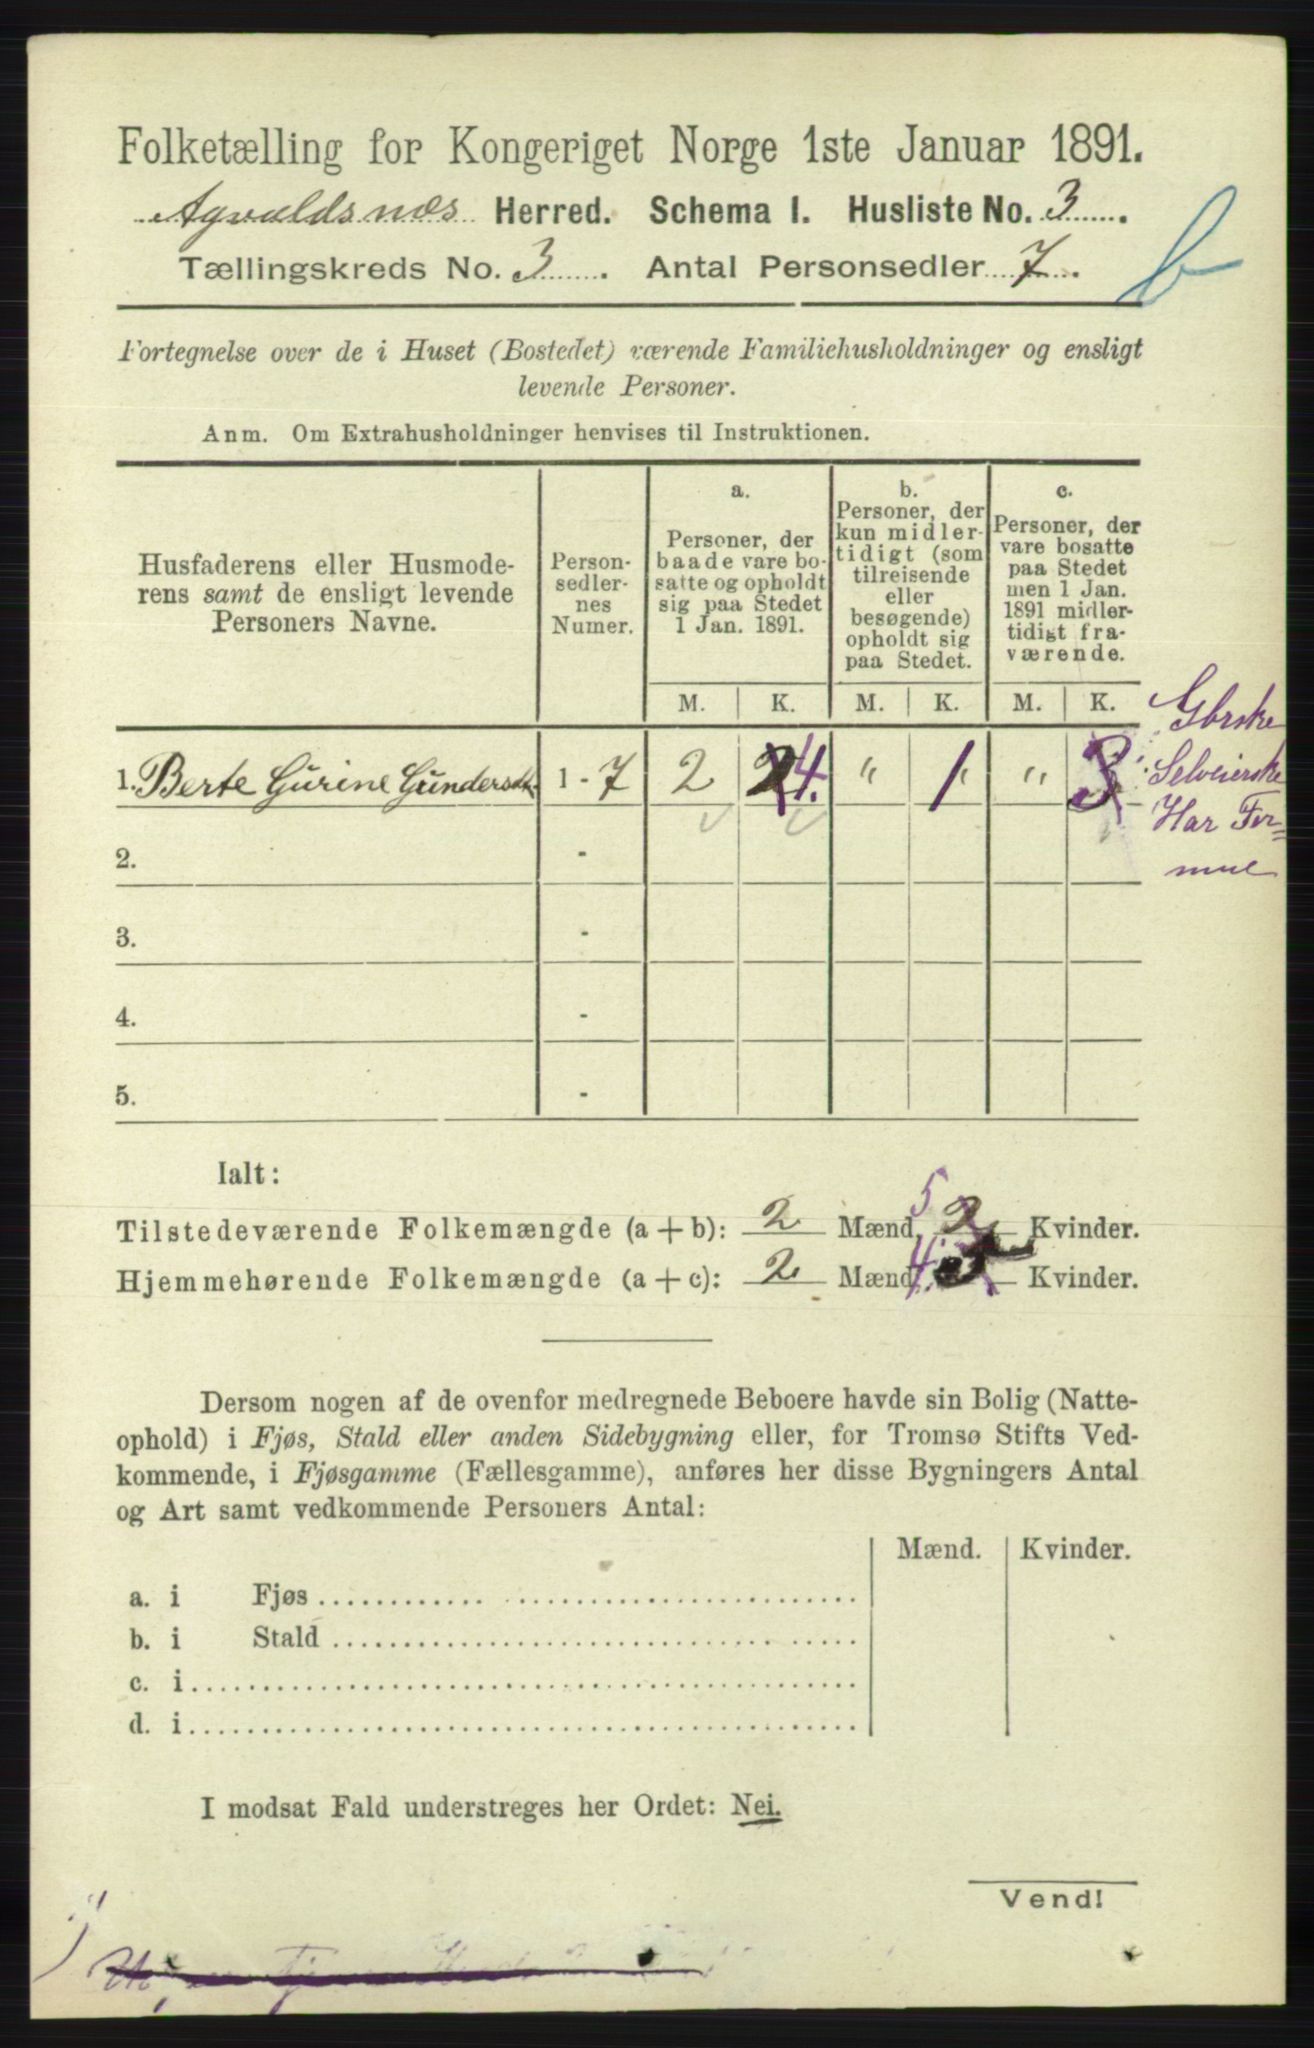 Folketælling for Kongeriget Norge 1ste Januar 1891.
Agvaldsnæs Herred. Schema I. Husliste No. 3.
Tællingskreds No. 3. Antal Personsedler 7.
b
Fortegnelse over de i Huset (Bostedet) værende Familiehusholdninger og ensligt
levende Personer.
Anm. Om Extrahusholdninger henvises til Instruktionen.
Husfaderens eller Husmode-
rens samt de ensligt levende
Personers Navne.
Person-
sedler-
nes
Numer.
a.
Personer, der
baade vare bo-
satte og opholdt
sig paa Stedet
1 Jan. 1891.
b.
Personer, der
kun midler-
tidigt (som
tilreisende
eller
besøgende)
opholdt sig
paa Stedet.
c.
Personer, der
vare bosatte
paa Stedet
men 1 Jan.
1891 midler-
tidigt fra-
værende.
M. K. M. K. M. K.
1. Berte Gurine Gundersdt. 1 - 7 2 2 4. " 1 " 3
Gbrske
Selveierske
Har For=
mue
2. -
3. -
4. -
5. -
Ialt:
Tilstedeværende Folkemængde (a + b): 2 Mænd, 5 2 Kvinder.
Hjemmehørende Folkemængde (a + c): 2 Mænd 4. 5 Kvinder.
Dersom nogen af de ovenfor medregnede Beboere havde sin Bolig (Natte-
ophold) i Fjøs, Stald eller anden Sidebygning eller, for Tromsø Stifts Ved-
kommende, i Fjøsgamme (Fællesgamme), anføres her disse Bygningers Antal
og Art samt vedkommende Personers Antal:
Mænd. Kvinder.
a. i Fjøs
b. i Stald
c. i
d. i
I modsat Fald understreges her Ordet: Nei.
Vend!